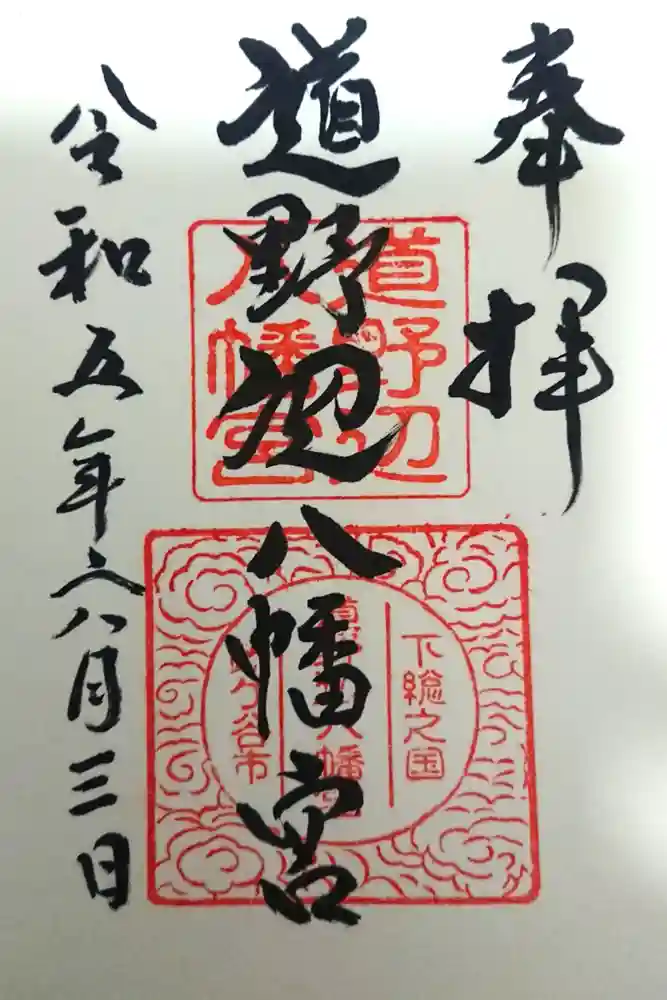 奉拝
道野辺八幡宮
道野辺
八幡宮
下総之国
道野辺八幡宮
鎌ケ谷市
令和五年六月三日